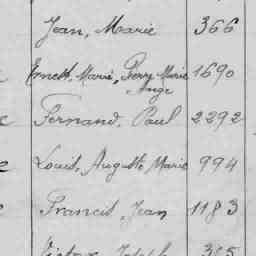 Jean, Marie 366
Ernest, Marie, Pierre Marie 1690
Ange
Fernand, Paul 2292
Louis, Auguste Marie 994
Francis, Jean 1183
Joseph 305